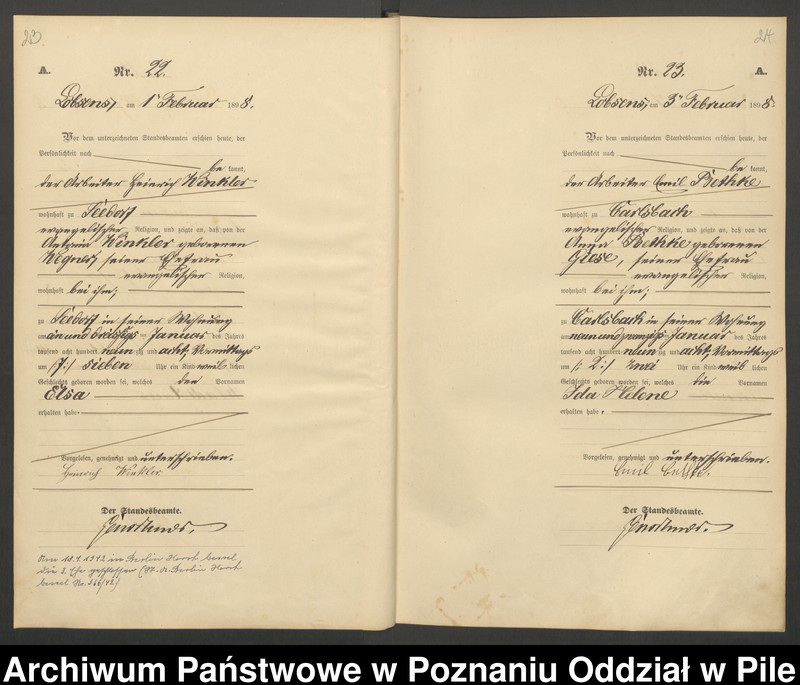 23.
A.
Nr. 22.
Lobsens, am 1ten Februar 1898.
Vor dem unterzeichneten Standesbeamten erschien heute, der
Persönlichkeit nach
be kannt,
der Arbeiter Heinrich Winkler
wohnhaft zu Seedorf
evangelischer Religion, und zeigte an, daß von der
Winkler geborenen
Wegner, seiner Ehefrau
evangelischer Religion,
wohnhaft bei ihm;
zu Seedorf in seiner Wohnung
am ein und dreißigsten Januar des Jahres
tausend acht hundert neun zig und acht, Vormittags
um (7:) sieben Uhr ein Kind weib lichen
Geschlechts geboren worden sei, welches den Vornamen
Elsa
erhalten habe.
Vorgelesen, genehmigt und unterschrieben.
Heinrich Winkler
Der Standesbeamte.
24.
Nr. 23.
A.
Lobsens, am 3ten Februar 1898.
Vor dem unterzeichneten Standesbeamten erschien heute, der
Persönlichkeit nach
be kannt,
der Arbeiter Emil Bethke
wohnhaft zu Carlsbach
evangelischer Religion, und zeigte an, daß von der
Anna Bethke geborenen
Giese, seiner Ehefrau
evangelischer Religion,
wohnhaft bei ihm;
zu Carlsbach in seiner Wohnung
am neun und zwanzigsten Januar des Jahres
tausend acht hundert neun zig und acht, Vormittags
um (: 2:) zwei Uhr ein Kind weib lichen
Geschlechts geboren worden sei, welches die Vornamen
Ida Helene
erhalten habe.
Vorgelesen, genehmigt und unterschrieben.
Emil Bethke.
Der Standesbeamte.
Archiwum Państwowe w Poznaniu Oddział w Pile